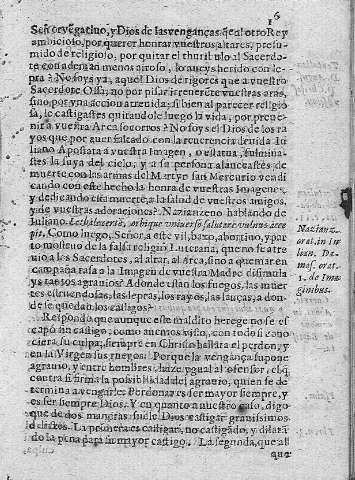 6
Señor vẽgatiuo, y Dios de las vengançasq̃ e al otro Rey
ambicioso, por querer honrar vuestros altares, presu-
mido de religioso, por quitar el thuribulo al Sacerdo-
te con ademan menos airoso, lo aueys herido con le-
pra? No soys ya, aquel Dios de rigores que a vuestro
Sacerdote Ossa, no por pisar irreuerẽte vuestras aras,
sino por vna accion atreuida, si bien al parecer religio
sa, le castigastes quitandole luego la vida, por preue-
nir a vuestra Arca socorros? No soys el Dios de los ra
yos que por auer faltado con la reuerencia deuida Iu
liano Apostata a vuestra Imagen, o estatua, fulmina-
stes la suya del cielo, y a su persona alanceastes de
muerte con las armas del Martyr san Mercurio vendi
cando con este hecho la honra de vuestras Imagenes,
y dedicando essa muerte, a la salud de vuestros amigos,
y de vuestras adoraciones? Nazianzeno hablando de
Iuliano. Lethiferam, orbique vniuerso salutare vulnus acce
pit. Como luego, Señor, a este vil, baxo, aborto, y par
to mostruo de la falsa religion Luterana, que no se atre
uio a los Sacerdotes, al altar, al arca, sino a quemar en
campaña rasa a la Imagen de vuestra Madre dissimula
ys tantos agrauios? Adonde estan los fuegos, las muer
tes estruendosas, las lepras, los rayos, las lanças, a don
de se quedan los castigos?
Respondo que aunque este maldito herege no se es
capò sin castigo, como auemos visto, con todo si cono
ciera su culpa, siempre en Christo hallàra el perdon, y
en la Virgen sus ruegos. Porque la vengança supone
agrauio, y entre hombres haze ygual al ofensor, el q̃
contra si firma la possibilidad del agrauio, quien se de
termina a vengarle. Perdonar es ser mayor siempre, y
es ser siempre Dios. Y en quanto a nuestro caso, digo
que de dos maneras suele Dios castigar grauissimos
delictos. La primera es castigar, no castigãdo, y dilatã
do la pena para su mayor castigo. La segunda, que al
que
Nazianz.
orat. in Iu
lian. Da-
mas. orat.
1. de Ima
ginibus.